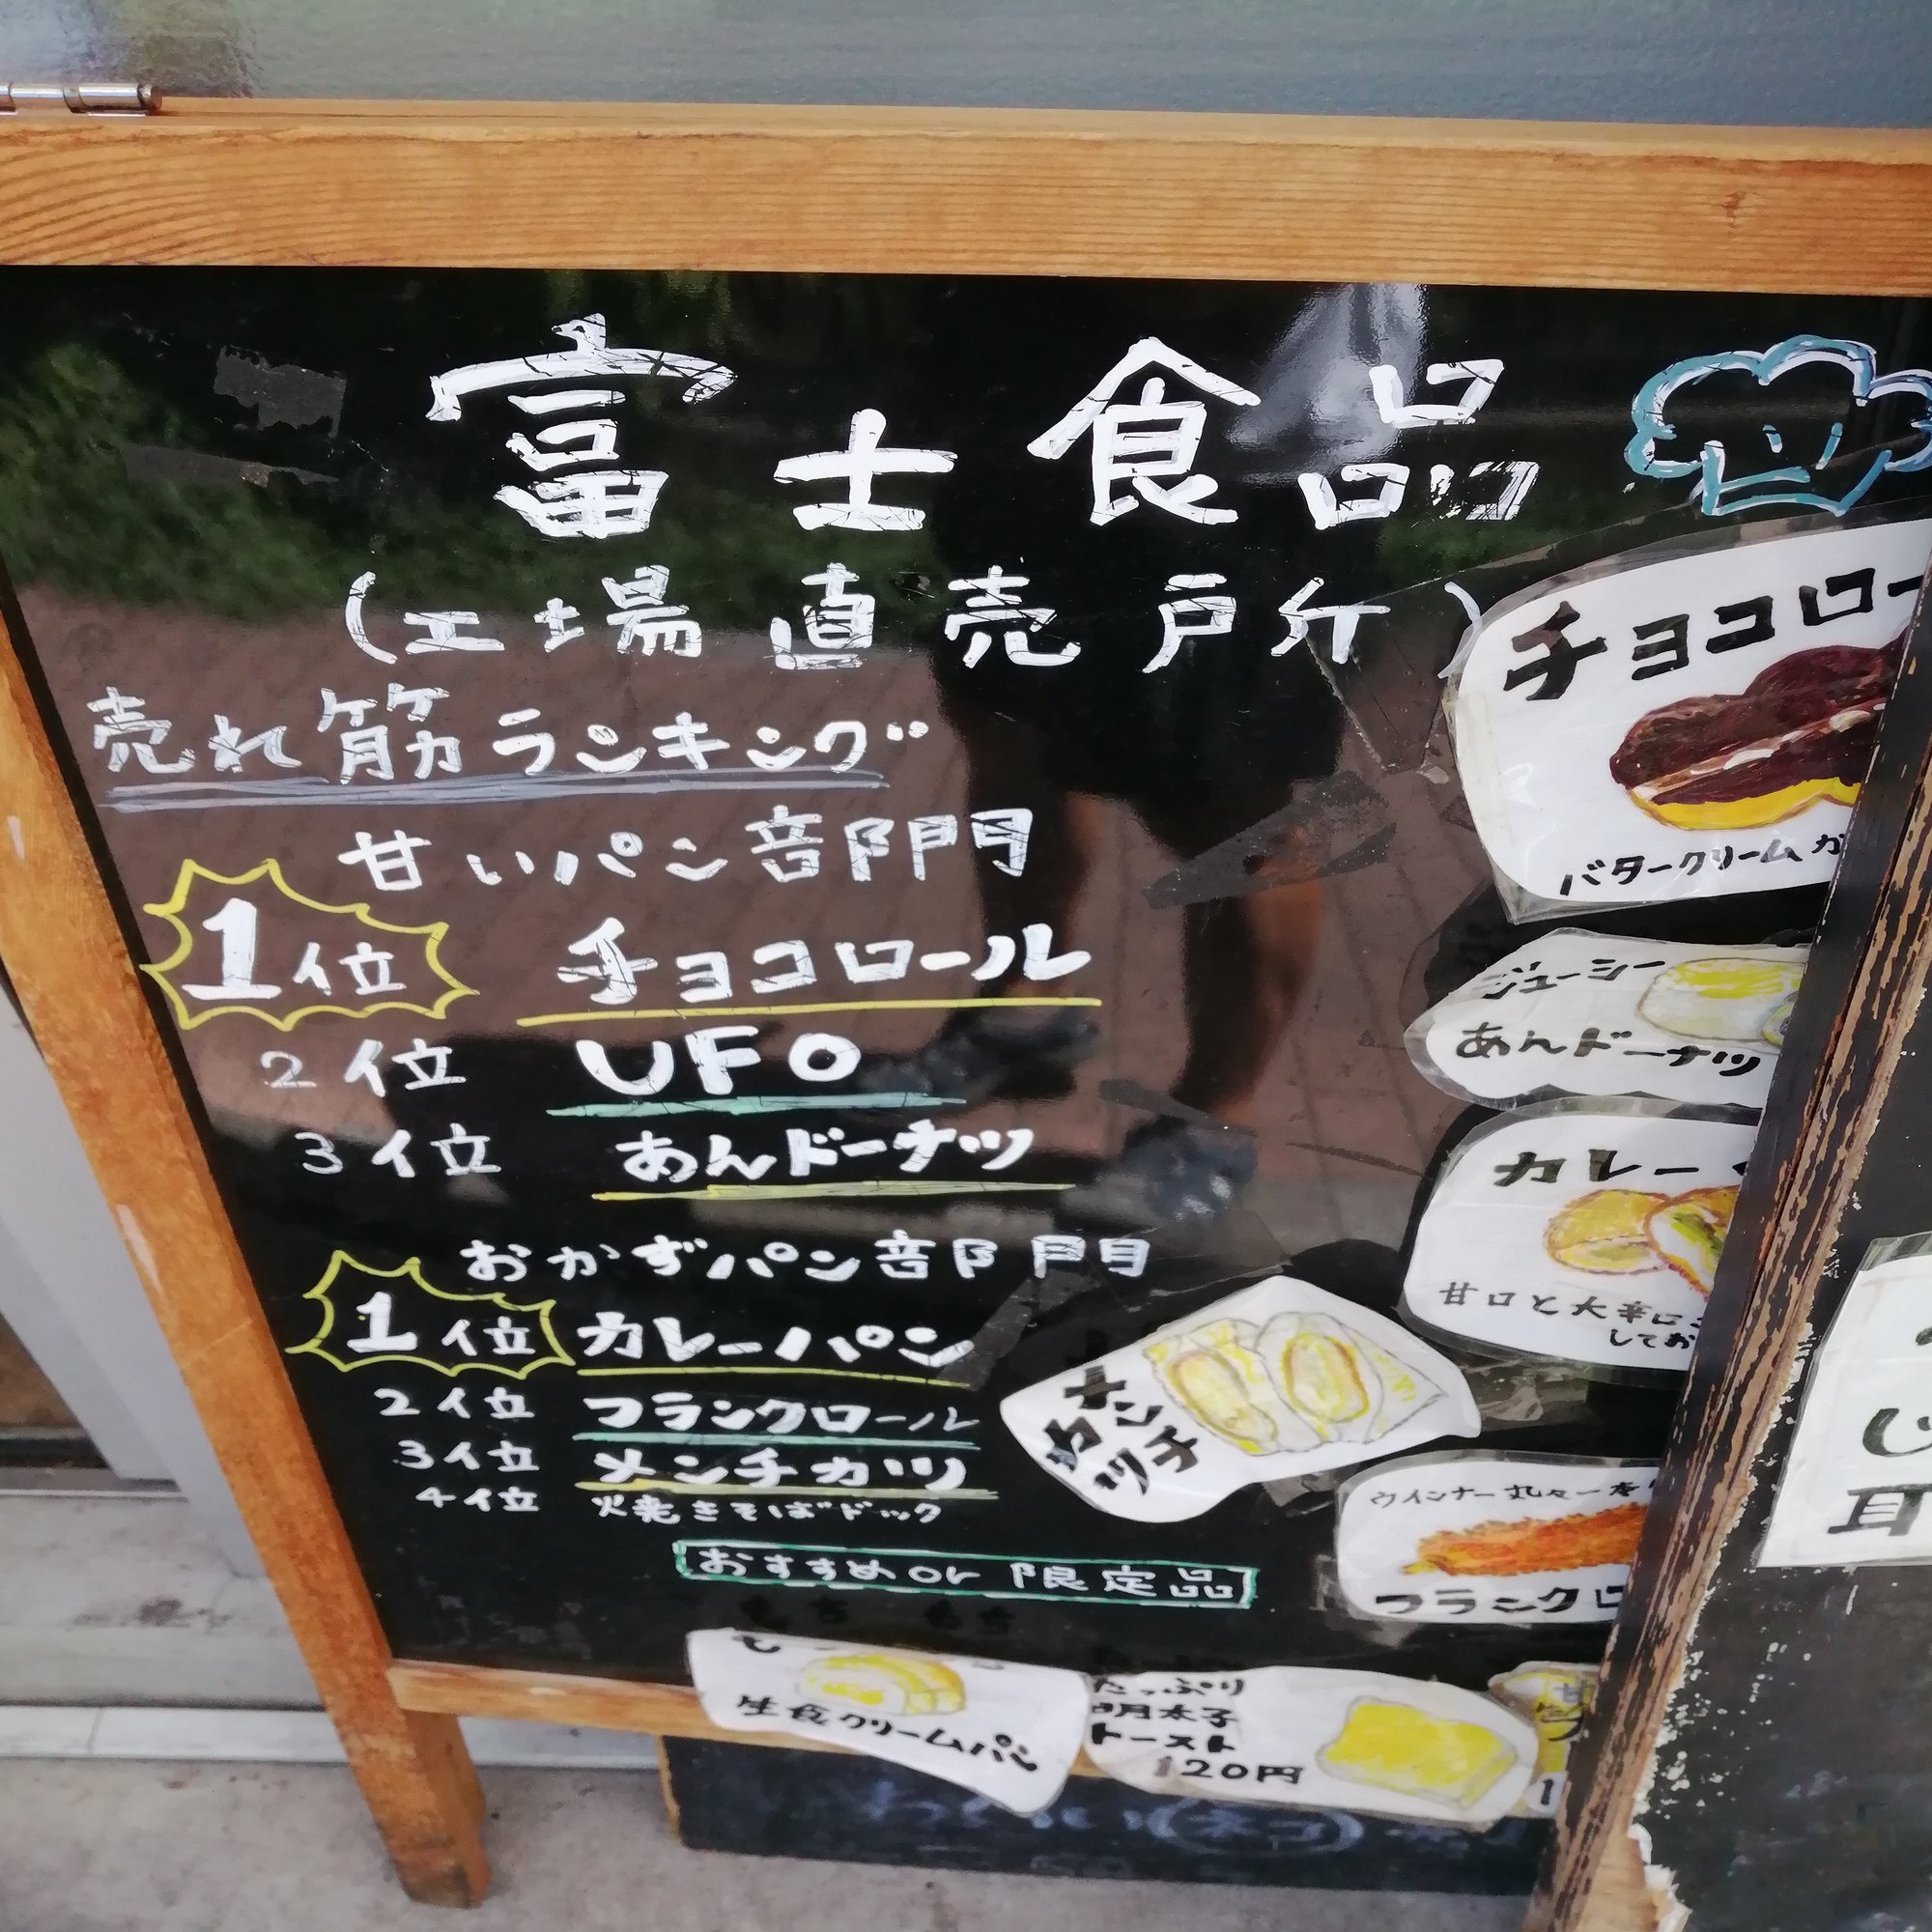 富士食品
（工場直売所）
売れ筋ランキング
甘いパン部門
1位 チョコロール
2位 UFO
3位 あんドーナツ
おかずパン部門
1位 カレーパン
2位 フランクロール
3位 メンチカツ
4位 焼きそばドック
おすすめor限定品
チョコロー
バタークリームが
ジューシー
あんドーナツ
カレー
甘口と大辛口
してお
メンチ
カツ
ウインナー丸々一本
フランクロ
生食クリームパン
たっぷり
明太子
トースト
120円
じ
耳